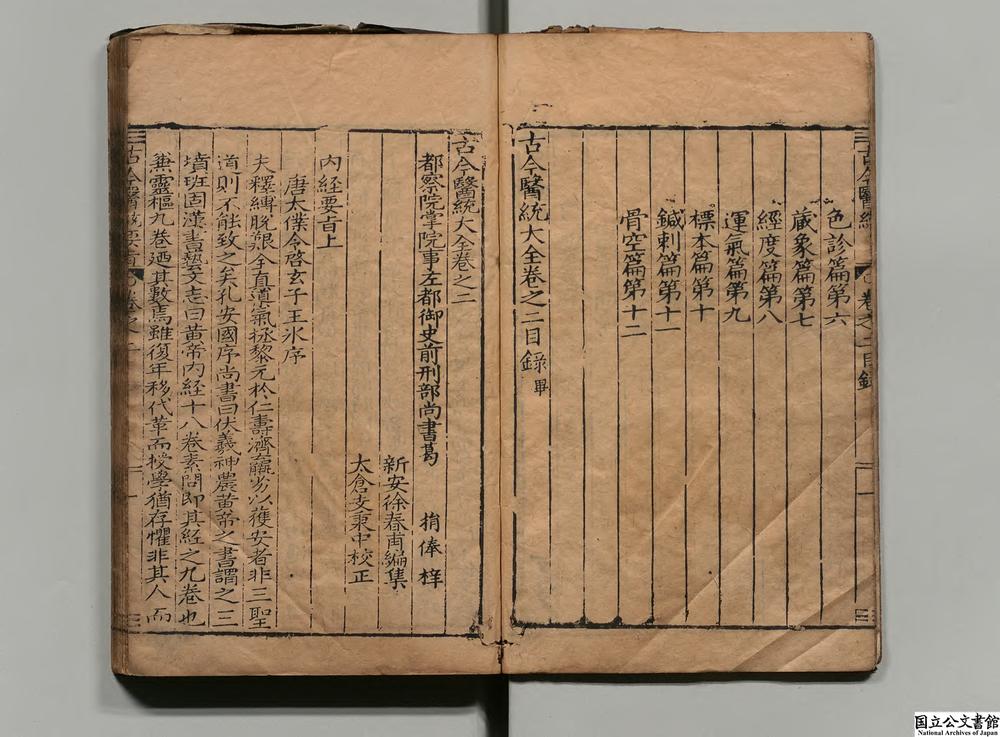 色診篇第六
藏象篇第七
經度篇第八
運氣篇第九
標本篇第十
鍼刺篇第十一
骨空篇第十二
古今醫統大全卷之二目錄畢
古今醫統大全卷之二
都察院掌院事左都御史前刑部尚書葛 捐俸梓
新安徐春甫編集
太倉支秉中校正
內経要旨上
唐太僕令啓玄子王氷序
夫釋縛脫艱全真導氣拯黎元於仁壽濟羸劣以獲安者非三聖
道則不能致之矣孔安國序尚書曰伏羲神農黃帝之書謂之三
墳班固漢書藝文志曰黃帝內経十八卷素問即其経之九卷也
兼靈樞九卷廼其數焉雖復年移代革而授學猶存懼非其人而
国立公文書館
National Archives of Japan